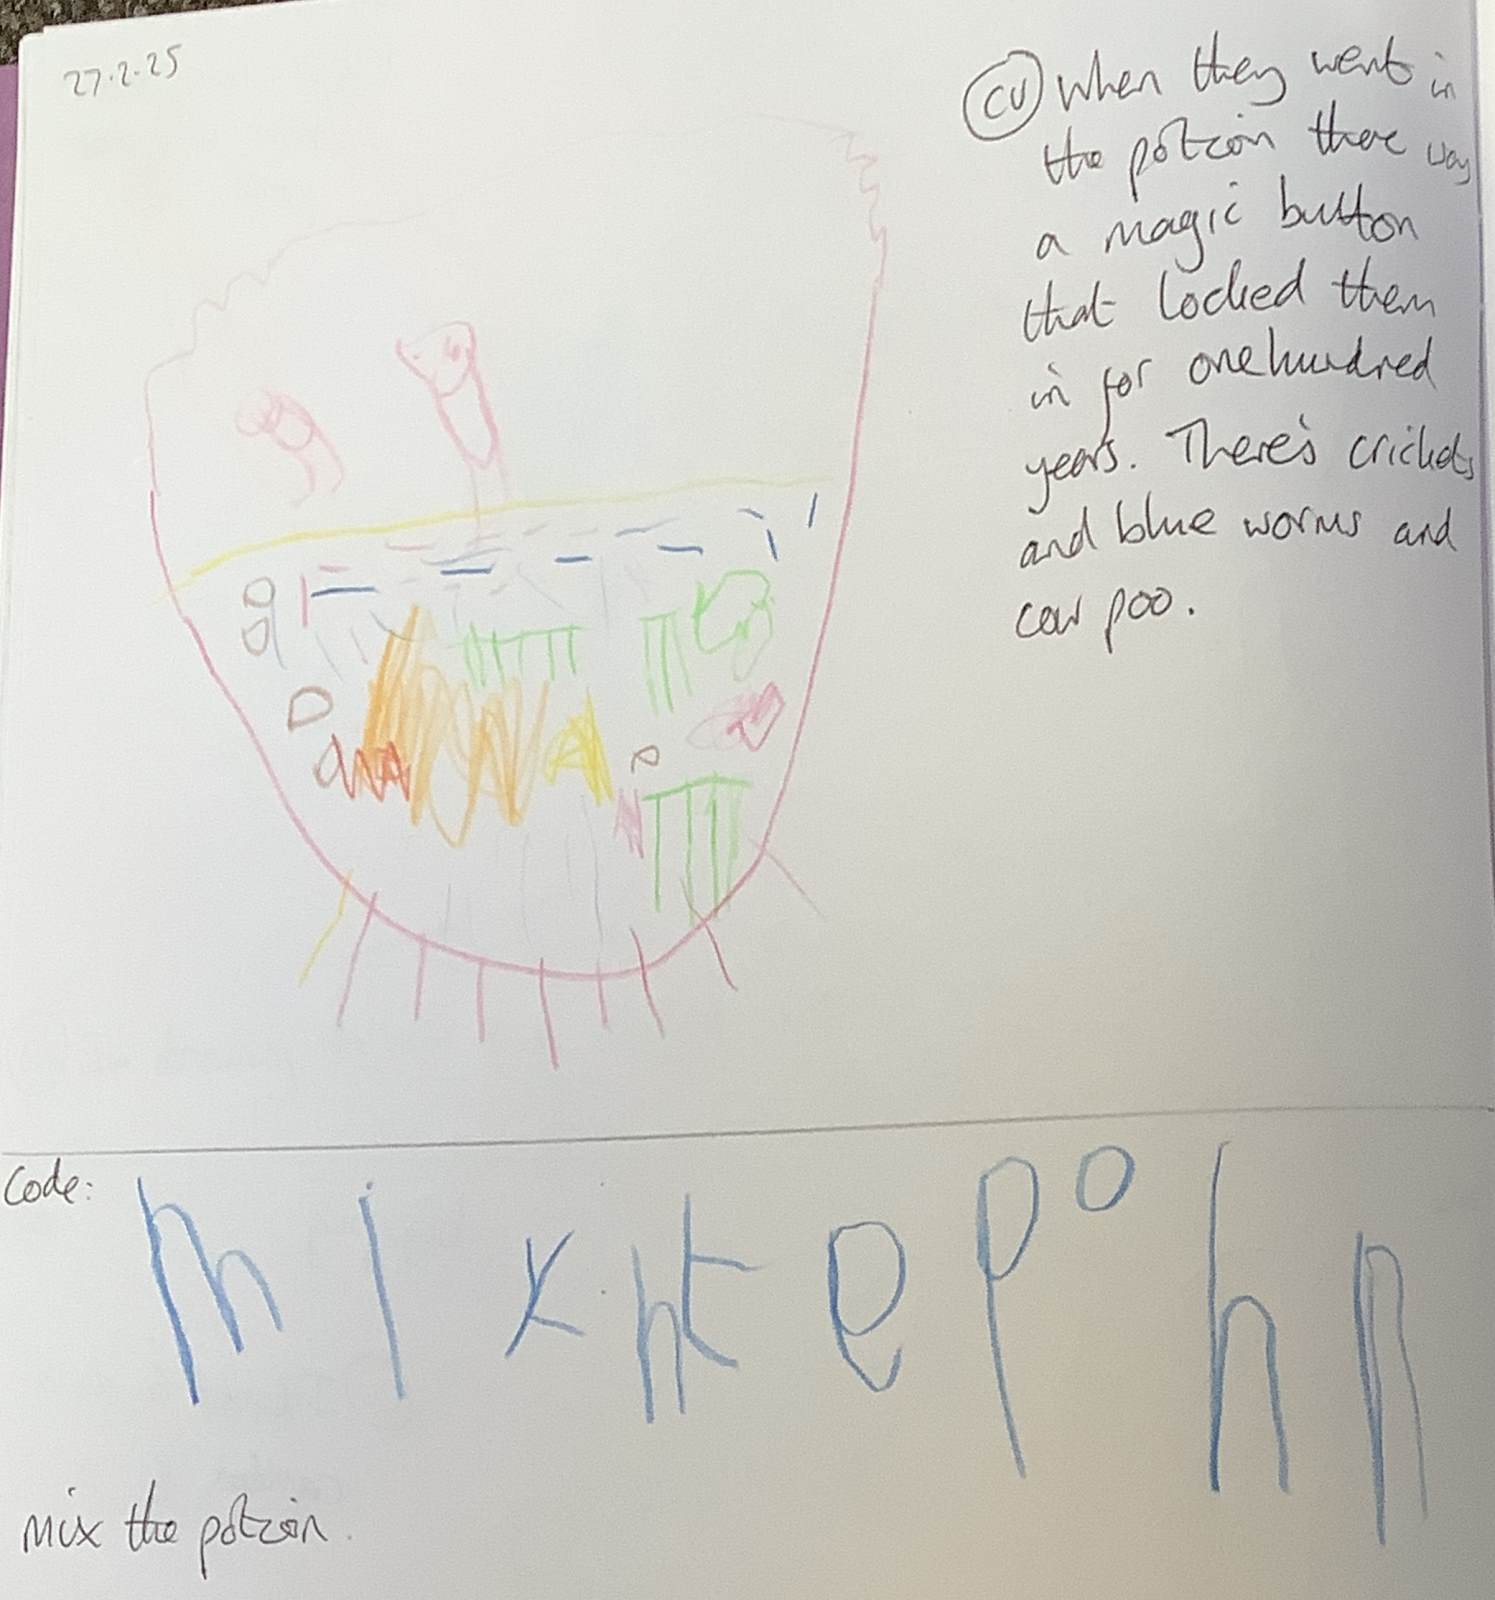 27.2.25
CU When they went in
the potion there was
a magic button
that locked them
in for one hundred
years. There's crickets
and blue worms and
cow poo.
Code:
m i x ht e p o h n
mix the potion.